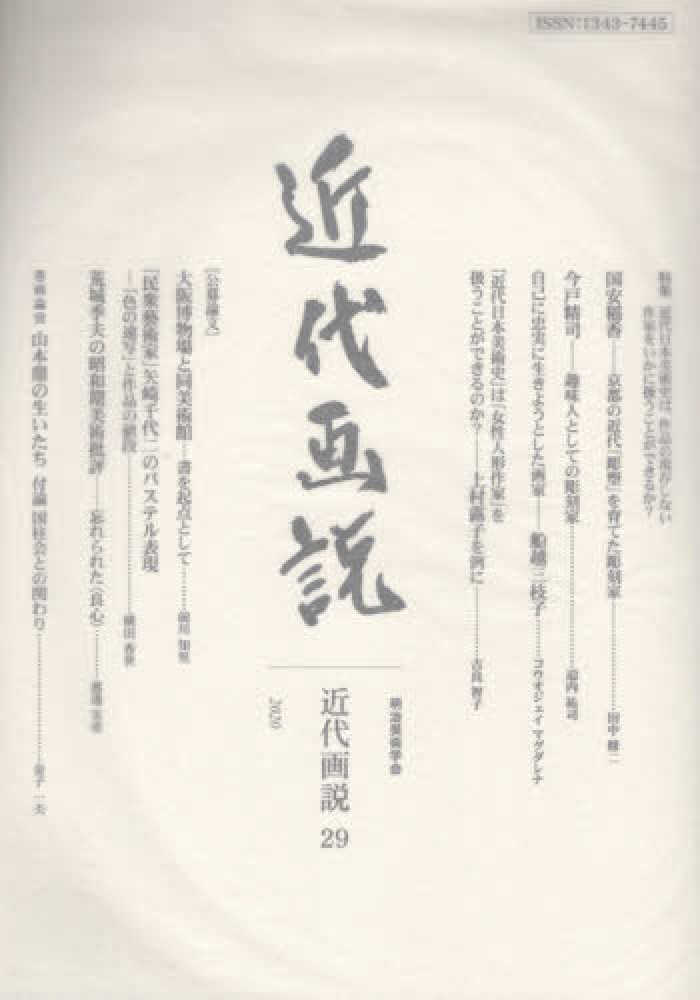 ISSN:1343-7445
特集 近代日本美術史は、作品の現存しない
作家をいかに扱うことができるか?
国安稲香――京都の近代「彫塑」を育てた彫刻家………田中 修二
今戸精司――趣味人としての彫刻家………迫内 祐司
自己に忠実に生きようとした画家――船越三枝子………コウオジェイ マグダレナ
「近代日本美術史」は「女性人形作家」を
扱うことができるのか?――上村露子を例に………吉良 智子
近代画説
明治美術学会
近代画説 29
2020
[公募論文]
大阪博物場と同美術館――書を起点として………前川 知里
「民衆藝術家」矢崎千代二のパステル表現
―「色の速写」と作品の値段………横田 香世
荒城季夫の昭和期美術批評――忘れられた〈良心〉………
山本鼎の生いたち 付論 国柱会との関わり………金子 一夫